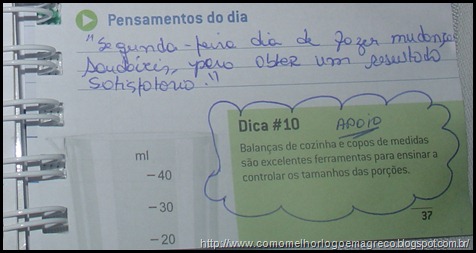 Pensamentos do dia
"Segunda-feira dia de fazer mudança
saudáveis, para obter um resultado
satisfatorio."
Dica #10 APOIO
Balanças de cozinha e copos de medidas
são excelentes ferramentas para ensinar a
controlar os tamanhos das porções.
ml
40
30
20
37
http://www.comomelhorlogoemagreco.blogspot.com.br/